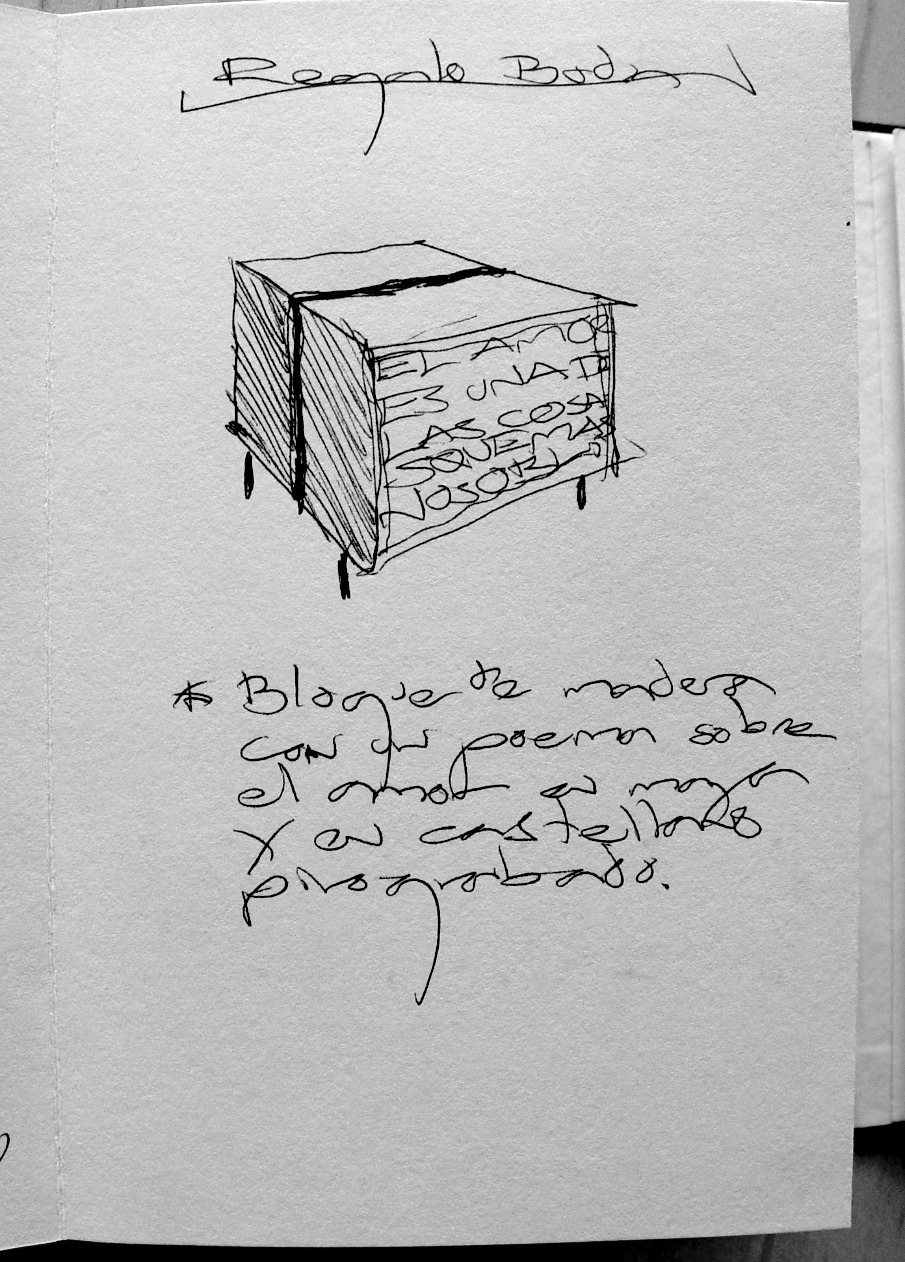 Regalo Boda
EL AMOR
ES UNA DE
LAS COSA
S QUE MAS
NOS
* Bloque de madera
con un poema sobre
el amor en maya
y en castellano
pirograbado.